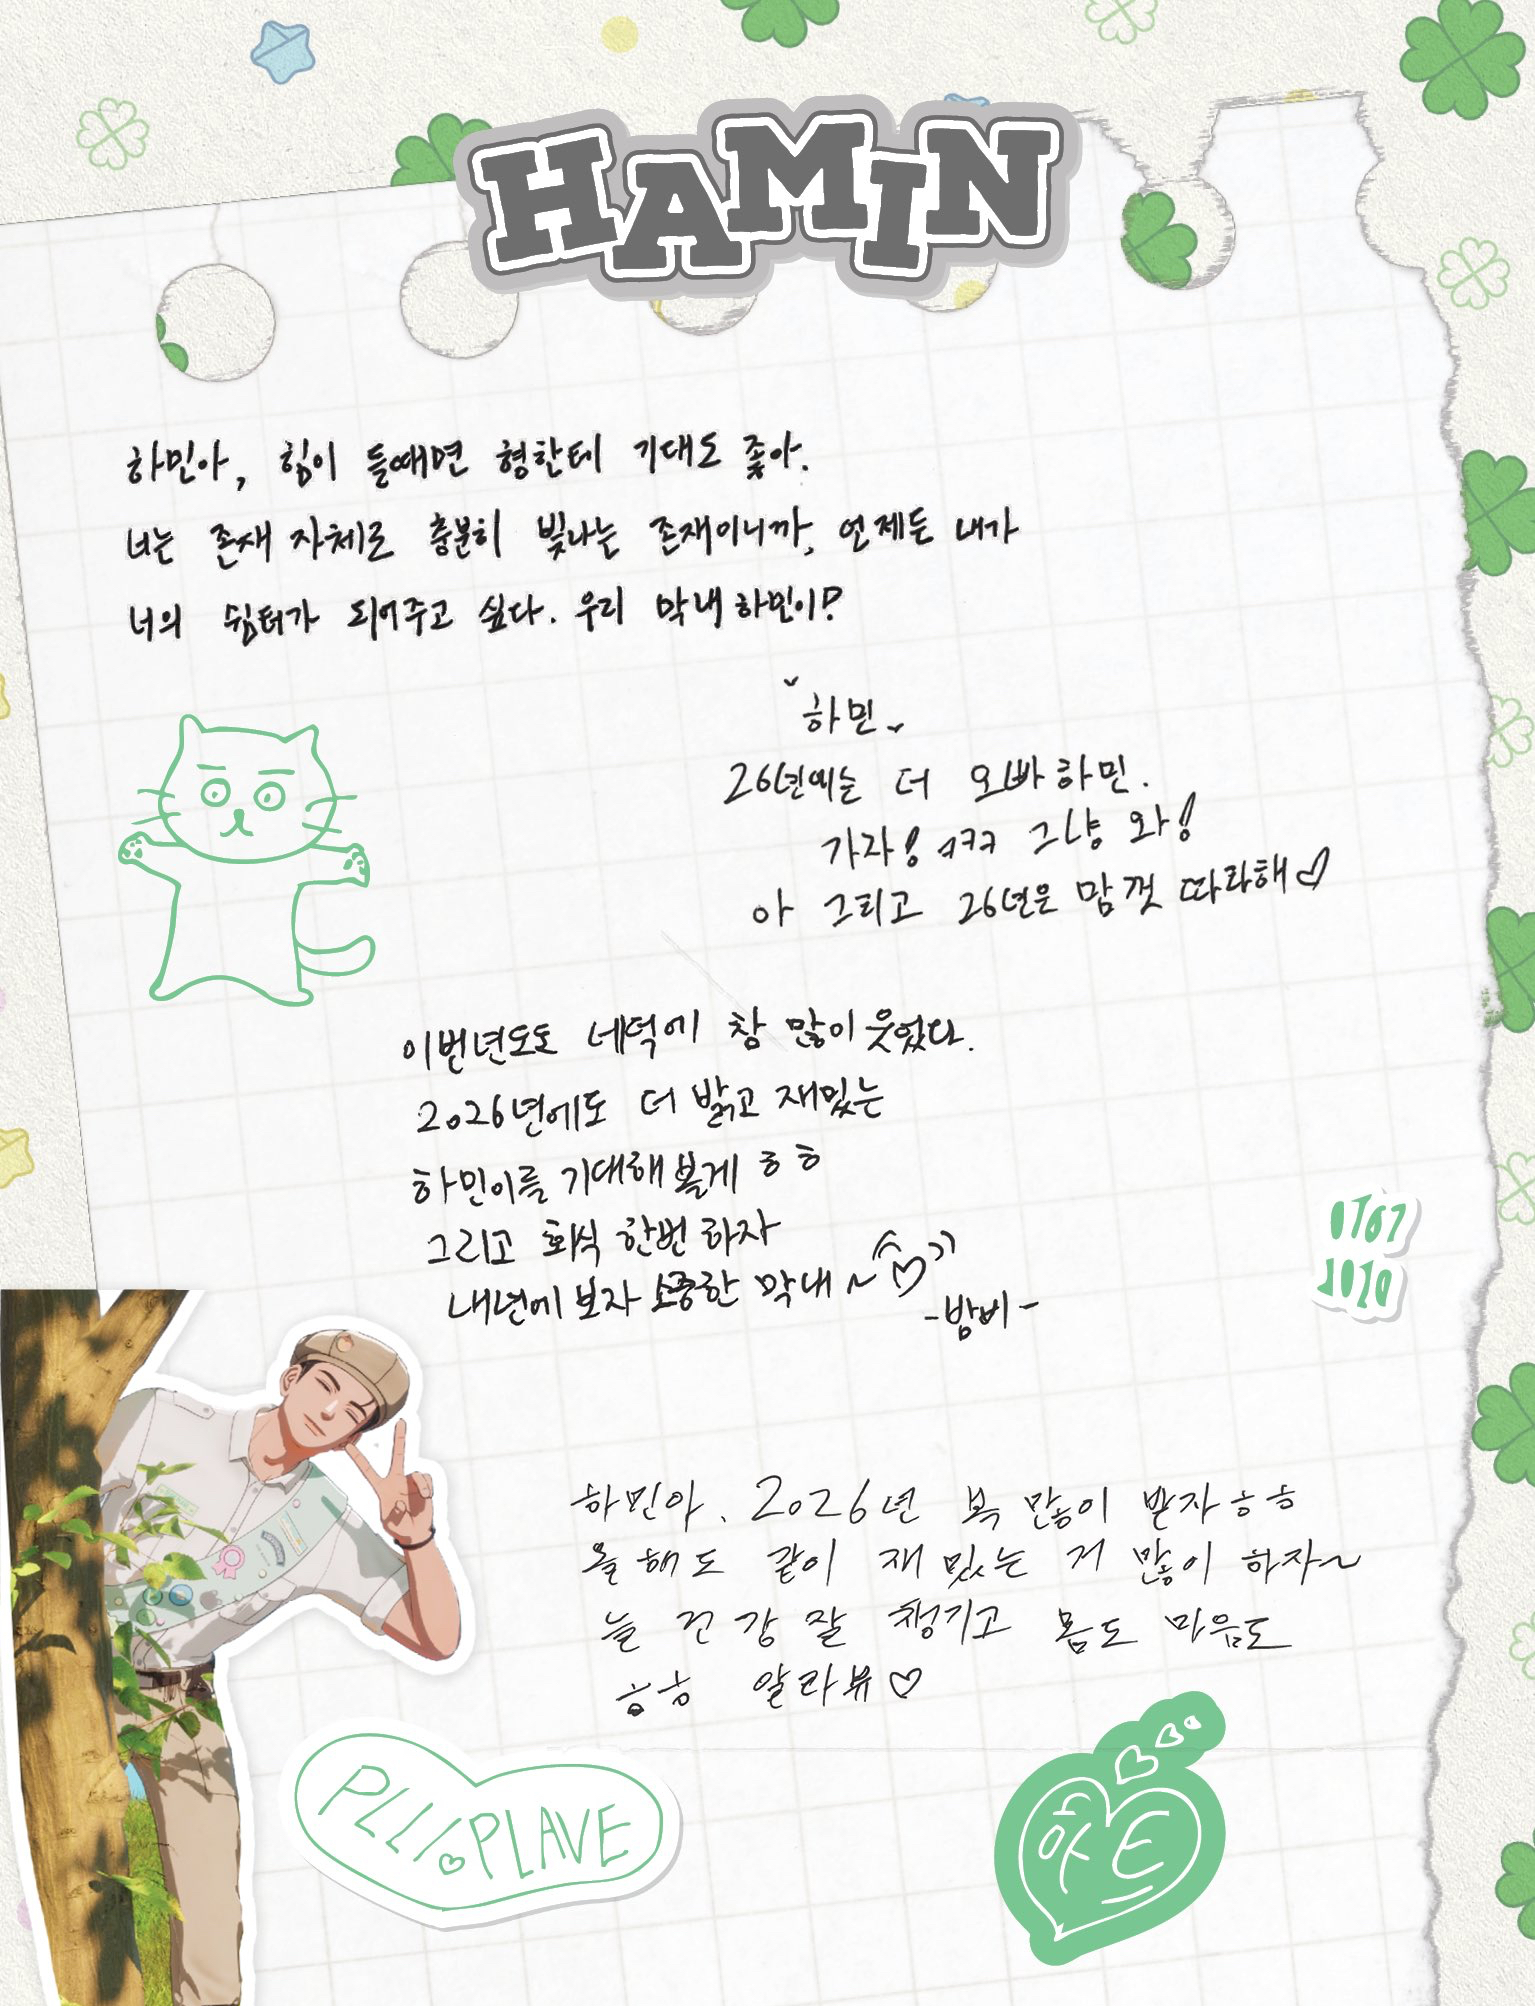 HAMIN
하민아, 힘이 들때면 형한테 기대도 좋아.
너는 존재 자체로 충분히 빛나는 존재이니까, 언제든 내가
너의 쉼터가 되어주고 싶다. 우리 막내 하민이?
하민
26년에는 더 오빠하민.
가자! ㅋㅋㅋ 그냥 와!
아 그리고 26년은 맘껏 따라해♡
이번년도도 네덕에 참 많이 웃었다.
2026년에도 더 밝고 재밌는
하민이를 기대해볼게 ㅎㅎ
그리고 회식 한번 하자
내년에 보자 소중한 막내~
-밤비-
하민아. 2026년 복 많이 받자ㅎㅎ
올해도 같이 재밌는 거 많이 하자~
늘 건강 잘 챙기고 몸도 마음도
ㅎㅎ 알라뷰♡
PLLI♡PLAVE